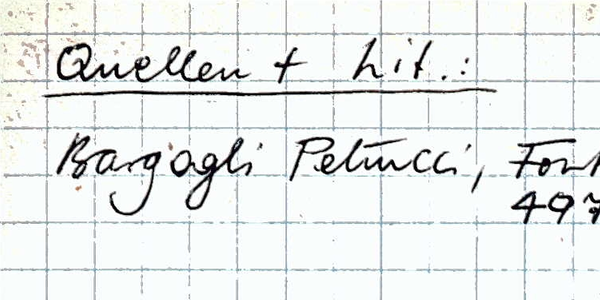 Quellen + Lit.:
Bargagli Petrucci, Font
497